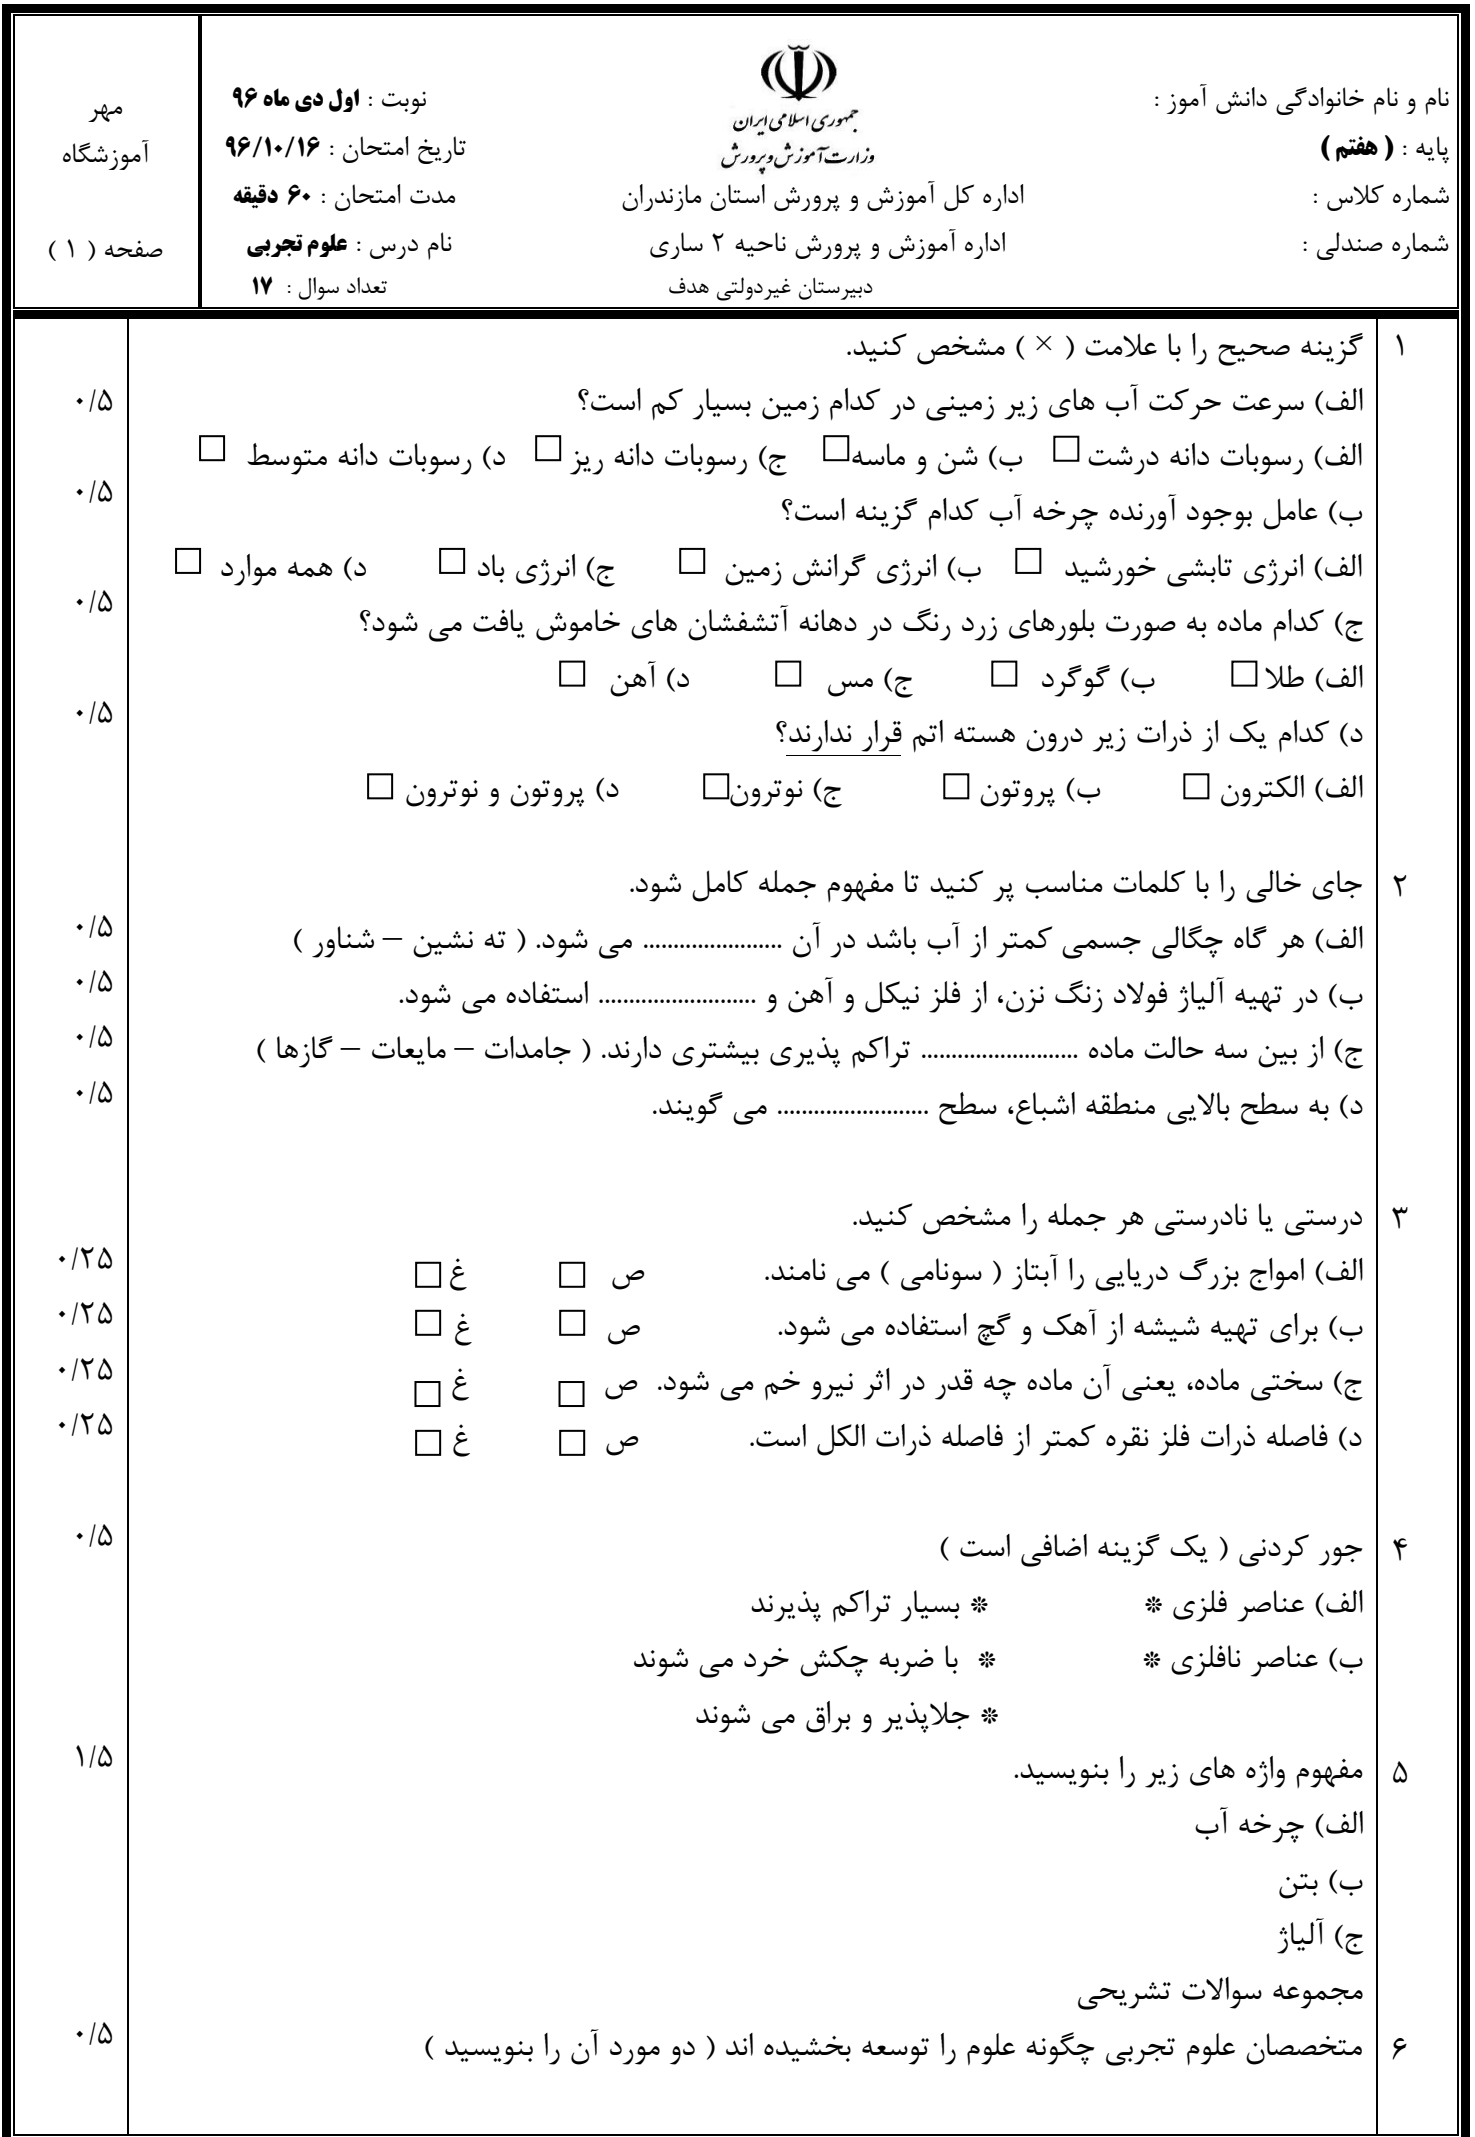 نام و نام خانوادگی دانش آموز :
پایه : ( هفتم )
شماره کلاس :
شماره صندلی :
جمهوری اسلامی ایران
وزارت آموزش و پرورش
اداره کل آموزش و پرورش استان مازندران
اداره آموزش و پرورش ناحیه ۲ ساری
دبیرستان غیردولتی هدف
نوبت : اول دی ماه ۹۶
تاریخ امتحان : ۹۶/۱۰/۱۶
مدت امتحان : ۶۰ دقیقه
نام درس : علوم تجربی
تعداد سوال : ۱۷
مهر
آموزشگاه
صفحه ( ۱ )
۱ گزینه صحیح را با علامت ( × ) مشخص کنید.
الف) سرعت حرکت آب های زیر زمینی در کدام زمین بسیار کم است؟ ۰/۵
الف) رسوبات دانه درشت □ ب) شن و ماسه □ ج) رسوبات دانه ریز □ د) رسوبات دانه متوسط □
ب) عامل بوجود آورنده چرخه آب کدام گزینه است؟ ۰/۵
الف) انرژی تابشی خورشید □ ب) انرژی گرانش زمین □ ج) انرژی باد □ د) همه موارد □
ج) کدام ماده به صورت بلورهای زرد رنگ در دهانه آتشفشان های خاموش یافت می شود؟ ۰/۵
الف) طلا □ ب) گوگرد □ ج) مس □ د) آهن □
د) کدام یک از ذرات زیر درون هسته اتم قرار ندارند؟ ۰/۵
الف) الکترون □ ب) پروتون □ ج) نوترون □ د) پروتون و نوترون □
۲ جای خالی را با کلمات مناسب پر کنید تا مفهوم جمله کامل شود.
الف) هر گاه چگالی جسمی کمتر از آب باشد در آن ....................... می شود. ( ته نشین – شناور ) ۰/۵
ب) در تهیه آلیاژ فولاد زنگ نزن، از فلز نیکل و آهن و .......................... استفاده می شود. ۰/۵
ج) از بین سه حالت ماده .......................... تراکم پذیری بیشتری دارند. ( جامدات – مایعات – گازها ) ۰/۵
د) به سطح بالایی منطقه اشباع، سطح ......................... می گویند. ۰/۵
۳ درستی یا نادرستی هر جمله را مشخص کنید.
الف) امواج بزرگ دریایی را آبتاز ( سونامی ) می نامند. ص □ غ □ ۰/۲۵
ب) برای تهیه شیشه از آهک و گچ استفاده می شود. ص □ غ □ ۰/۲۵
ج) سختی ماده، یعنی آن ماده چه قدر در اثر نیرو خم می شود. ص □ غ □ ۰/۲۵
د) فاصله ذرات فلز نقره کمتر از فاصله ذرات الکل است. ص □ غ □ ۰/۲۵
۴ جور کردنی ( یک گزینه اضافی است ) ۰/۵
الف) عناصر فلزی * * بسیار تراکم پذیرند
ب) عناصر نافلزی * * با ضربه چکش خرد می شوند
* جلاپذیر و براق می شوند
۵ مفهوم واژه های زیر را بنویسید. ۱/۵
الف) چرخه آب
ب) بتن
ج) آلیاژ
مجموعه سوالات تشریحی
۶ متخصصان علوم تجربی چگونه علوم را توسعه بخشیده اند ( دو مورد آن را بنویسید ) ۰/۵